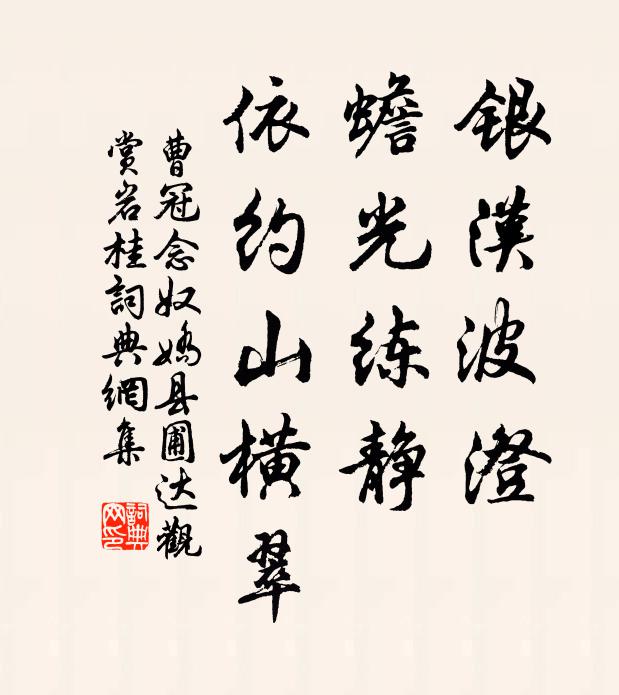 银汉波澄
蟾光练静
依约山横翠
曹冠念奴娇县圃达观
赏岩桂词典网集
词典网印